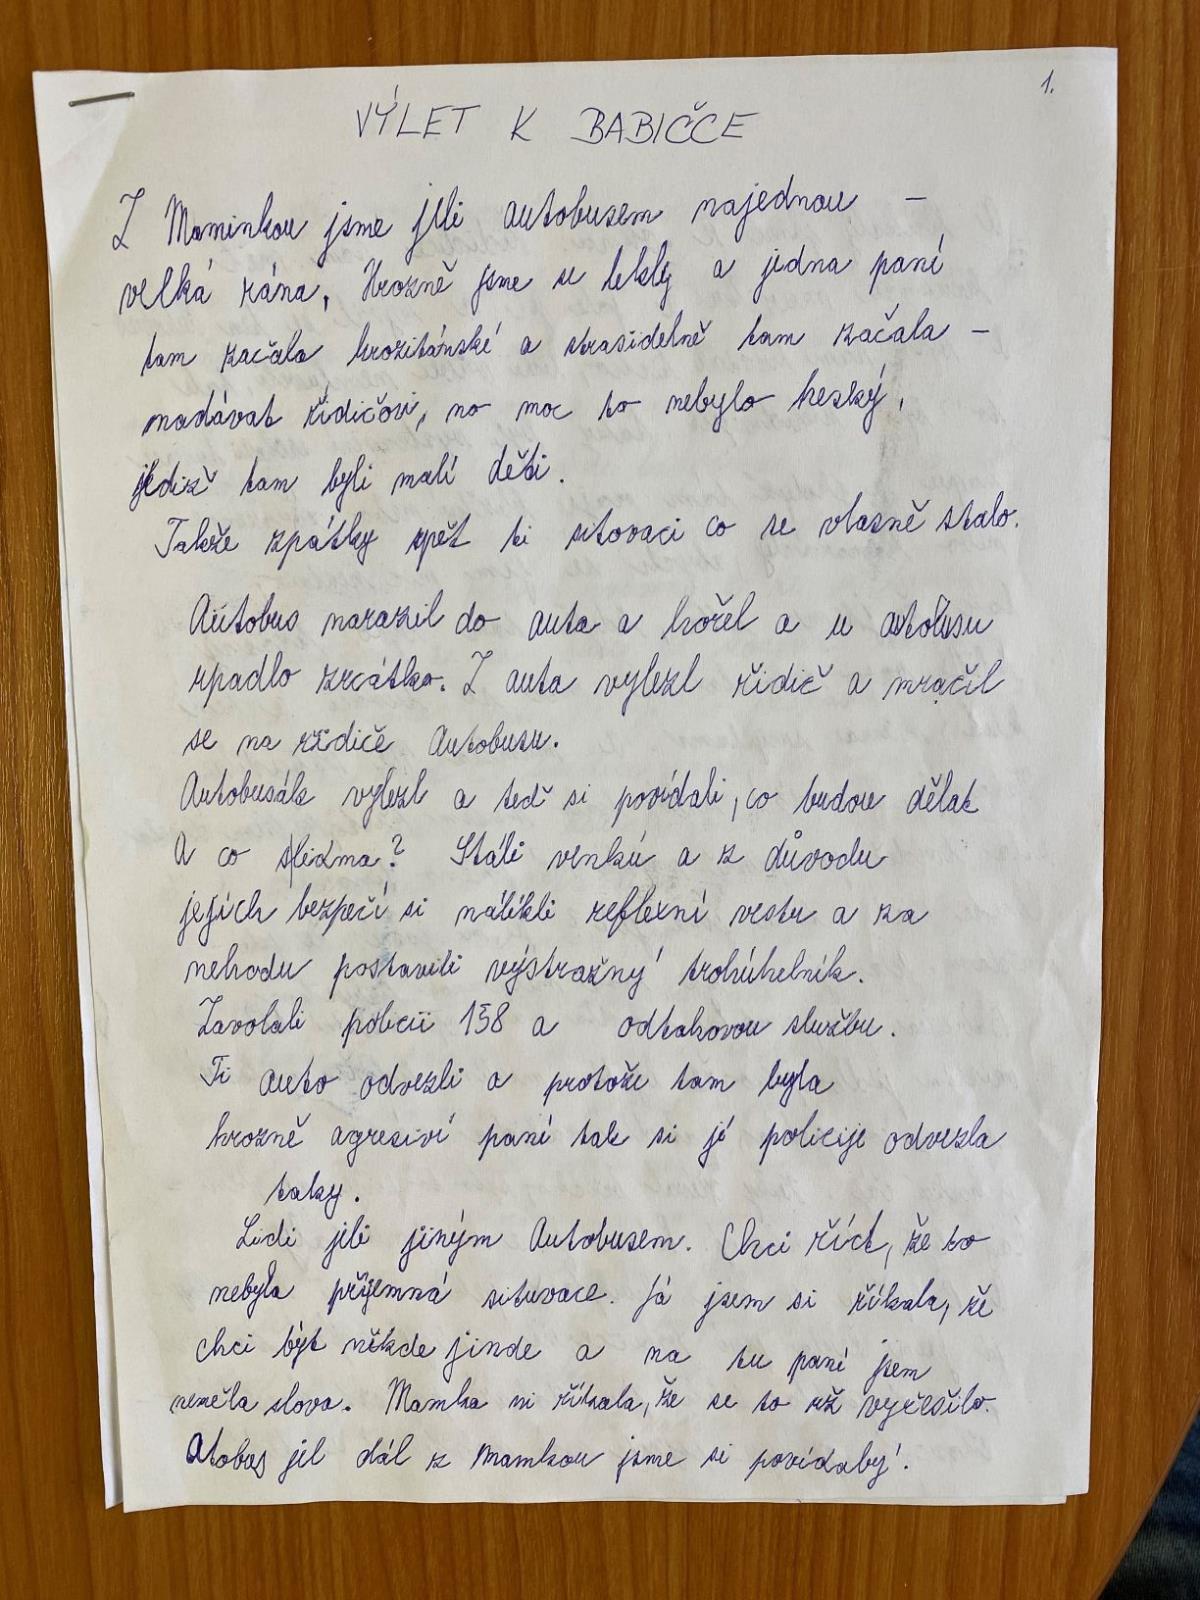 1.
VÝLET K BABIČCE
Z Maminkou jsme jeli autobusem najednou –
velká rána, Hrozně jsme se lekly a jedna paní
tam začala hrozitánské a strasidelně tam začala –
nadávat řidičovi, no moc to nebylo heský,
jedikž tam byli malí děti.
Takže zpátky zpět ti sitovaci co se vlasně stalo.
Aútobus narazil do auta a hořel a u autobusu
spadlo zrcátko. Z auta vylezl řidič a mračil
se na řidiče Autobusu.
Autobusák vylezl a teď si povídali, co budou dělat
A co sledma? Stáli venkú a z důvodu
jejich bezpečí si nalíkli reflexní vestu a za
nehodu postavili výstražný trohúhelník.
Zavolali policii 158 a odtahovou službu.
Ti auto odvezli a protože tam byla
hrozně agresiví paní tak si jí policije odvezla
taky.
Lidi jeli jiným Autobusem. Chci říct, že to
nebyla příjemná situvace. Já jsem si říkala, že
chci být někde jinde a na tu paní jsem
neměla slova. Mamka mi říkala, že se to už vyřešilo.
Atobus jel dál z mamkou jsme si povídaly.